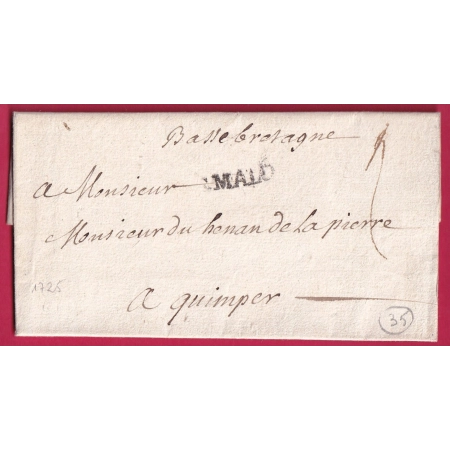 Basse bretagne
a Monsieur
S.MALO
Monsieur du henan de la pierre
a quimper
1725
35